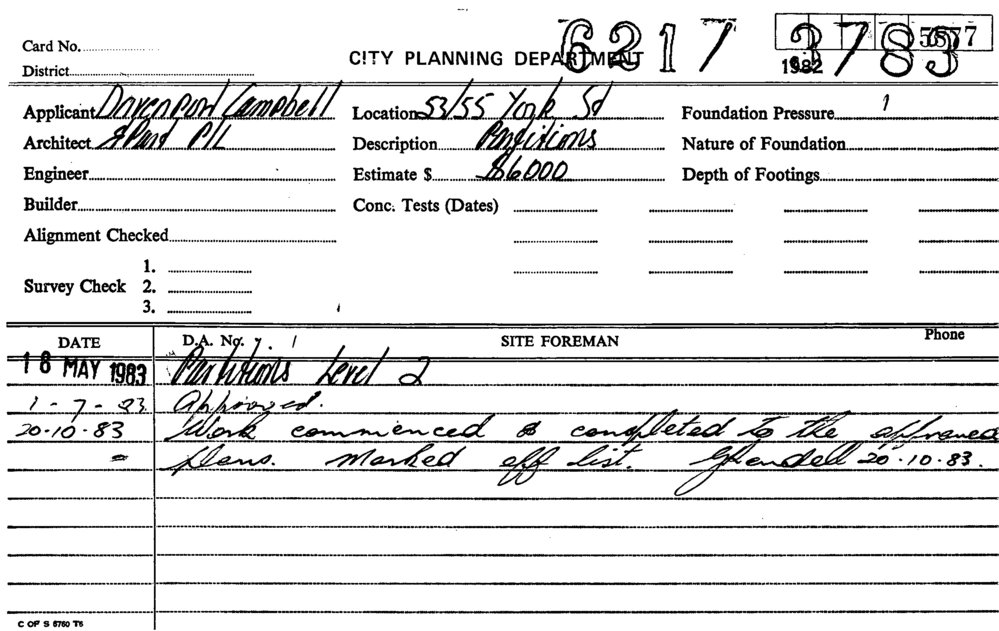 6217 3783
5877
Card No.
CITY PLANNING DEPARTMENT
1982
District
Applicant Davenport Campbell Location 53/55 York St Foundation Pressure
Architect & Part P/L Description Partitions Nature of Foundation
Engineer Estimate $ $6000 Depth of Footings
Builder Conc. Tests (Dates)
Alignment Checked
1.
Survey Check 2.
3.
DATE D.A. No. SITE FOREMAN Phone
18 MAY 1983 Partitions Level 2
1-7-83 Approved.
20-10-83 Work commenced & completed to the approved
" plans. Marked off list. 20.10.83.
C OF S 5760 T5